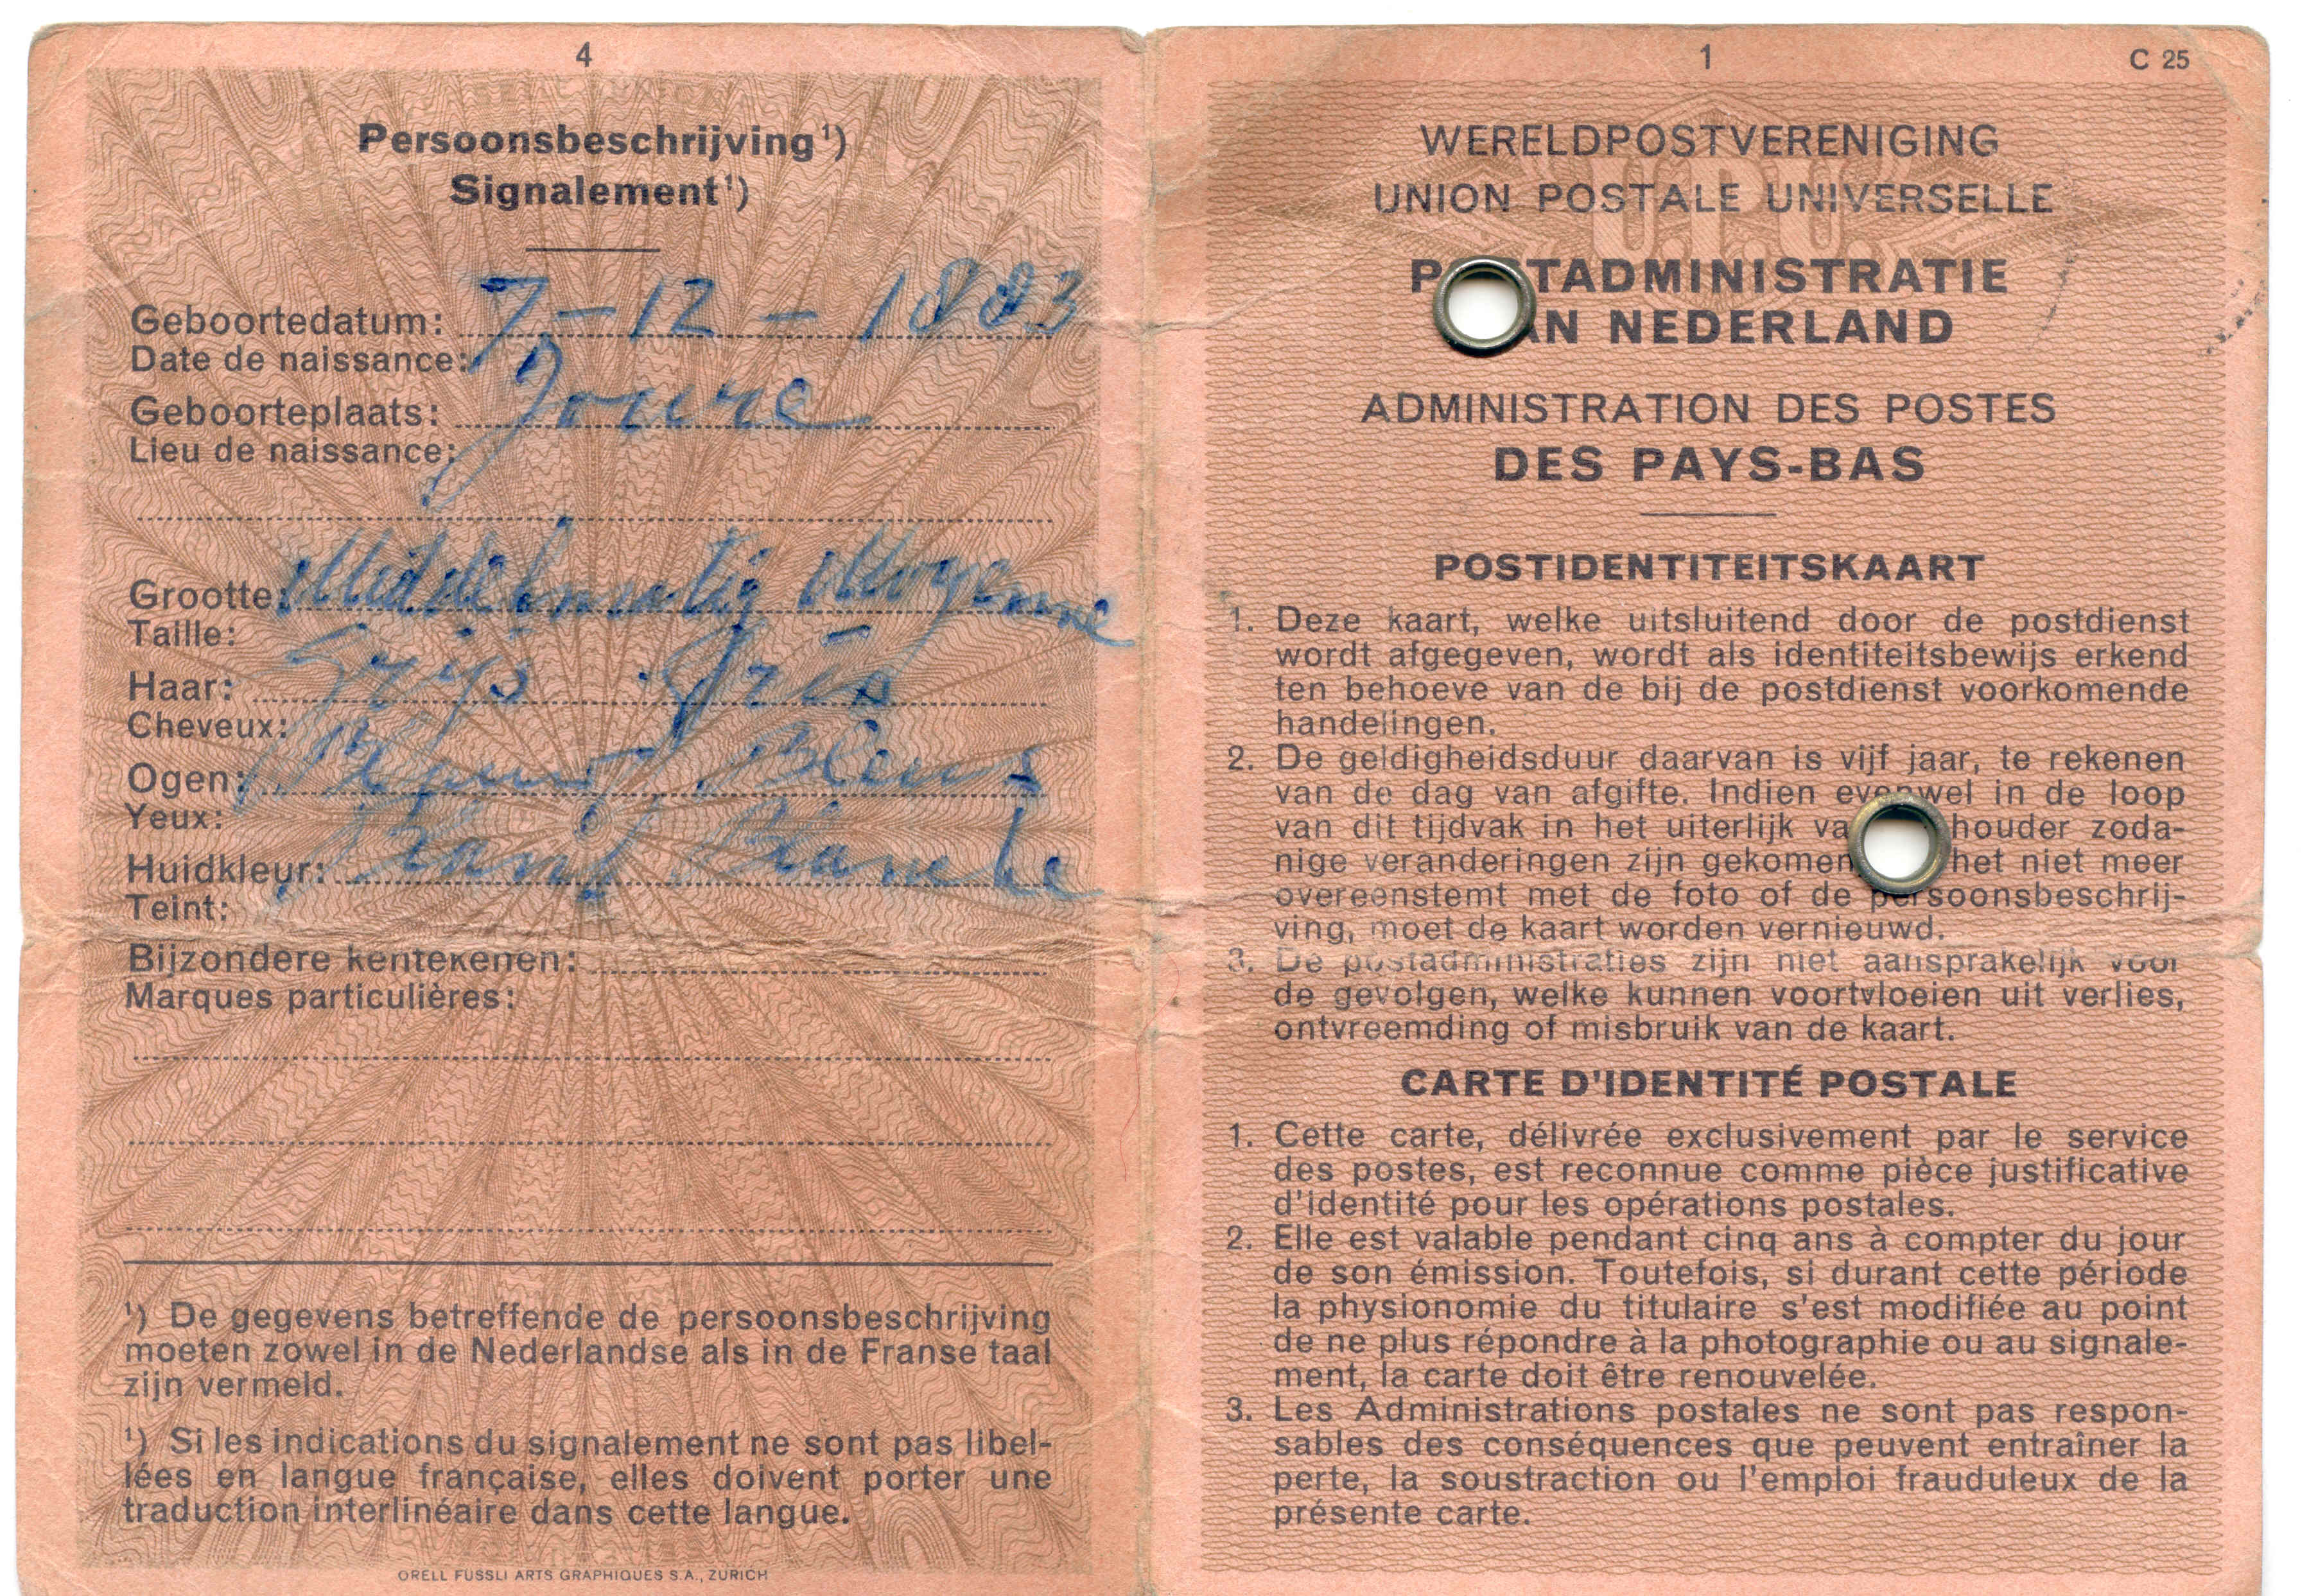 4
Persoonsbeschrijving¹)
Signalement¹)
Geboortedatum: 7-12-1883
Date de naissance:
Geboorteplaats: Joure
Lieu de naissance:
Grootte: Middelmatig Moyenne
Taille:
Haar: Grijs Gris
Cheveux:
Ogen: Blauw Bleus
Yeux:
Huidkleur: Blank Blanche
Teint:
Bijzondere kentekenen:
Marques particulières:
¹) De gegevens betreffende de persoonsbeschrijving
moeten zowel in de Nederlandse als in de Franse taal
zijn vermeld.
¹) Si les indications du signalement ne sont pas libel-
lées en langue française, elles doivent porter une
traduction interlinéaire dans cette langue.
ORELL FÜSSLI ARTS GRAPHIQUES S.A., ZURICH
1
C 25
WERELDPOSTVERENIGING
UNION POSTALE UNIVERSELLE
U.P.U.
P TADMINISTRATIE
AN NEDERLAND
ADMINISTRATION DES POSTES
DES PAYS-BAS
POSTIDENTITEITSKAART
1. Deze kaart, welke uitsluitend door de postdienst
wordt afgegeven, wordt als identiteitsbewijs erkend
ten behoeve van de bij de postdienst voorkomende
handelingen.
2. De geldigheidsduur daarvan is vijf jaar, te rekenen
van de dag van afgifte. Indien evenwel in de loop
van dit tijdvak in het uiterlijk va houder zoda-
nige veranderingen zijn gekomen het niet meer
overeenstemt met de foto of de persoonsbeschrij-
ving, moet de kaart worden vernieuwd.
3. De postadministraties zijn niet aansprakelijk voor
de gevolgen, welke kunnen voortvloeien uit verlies,
ontvreemding of misbruik van de kaart.
CARTE D'IDENTITÉ POSTALE
1. Cette carte, délivrée exclusivement par le service
des postes, est reconnue comme pièce justificative
d'identité pour les opérations postales.
2. Elle est valable pendant cinq ans à compter du jour
de son émission. Toutefois, si durant cette période
la physionomie du titulaire s'est modifiée au point
de ne plus répondre à la photographie ou au signale-
ment, la carte doit être renouvelée.
3. Les Administrations postales ne sont pas respon-
sables des conséquences que peuvent entraîner la
perte, la soustraction ou l'emploi frauduleux de la
présente carte.